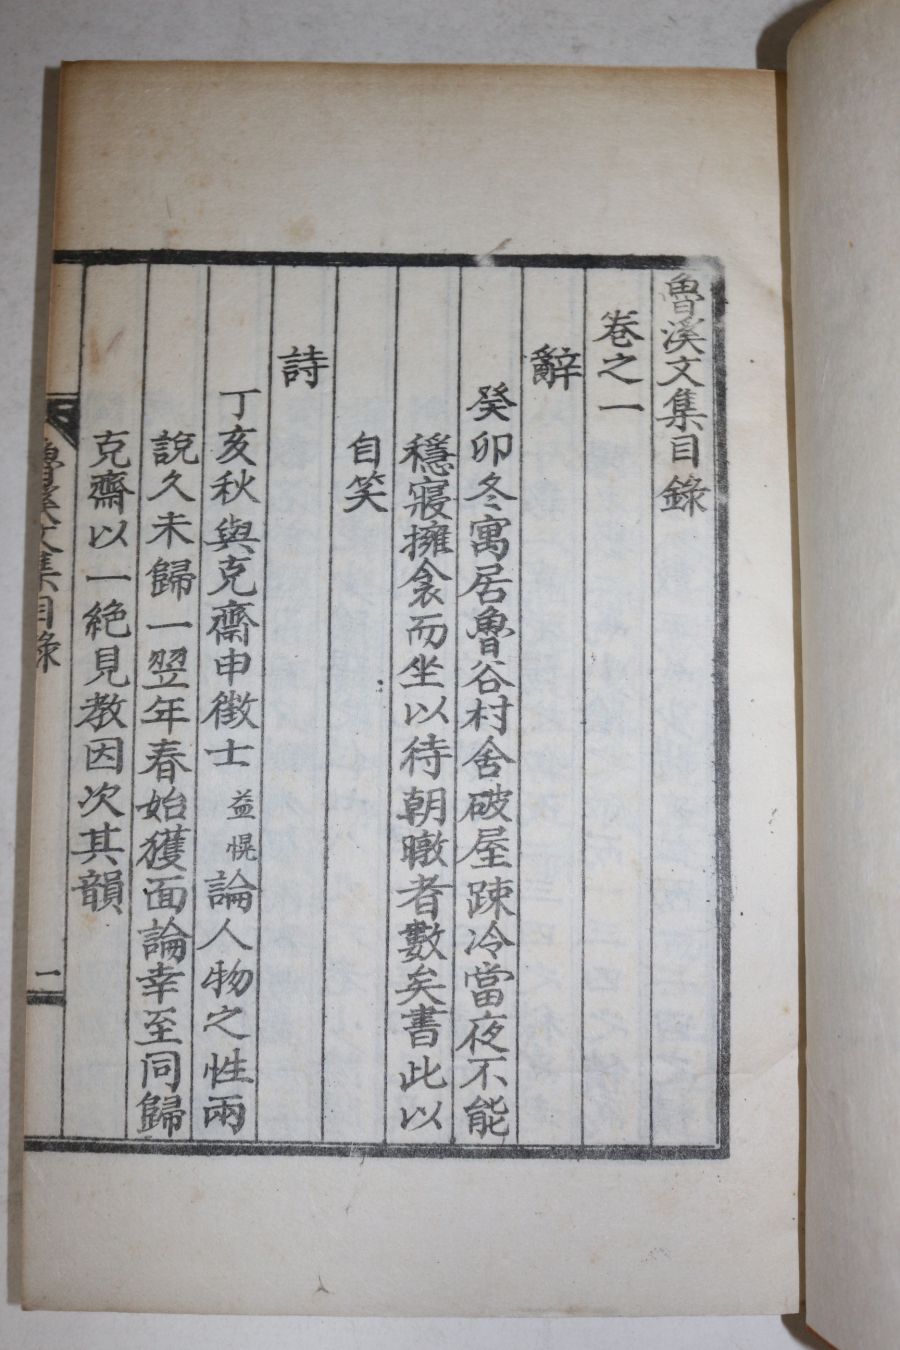 魯溪文集目錄
卷之一
辭
癸卯冬寓居魯谷村舍破屋踈冷當夜不能
穩寢擁衾而坐以待朝暾者數矣書此以
自笑
詩
丁亥秋與克齋申徵士益愰論人物之性兩
說久未歸一翌年春始獲面論幸至同歸
克齋以一絶見教因次其韻
魯溪文集目錄
一